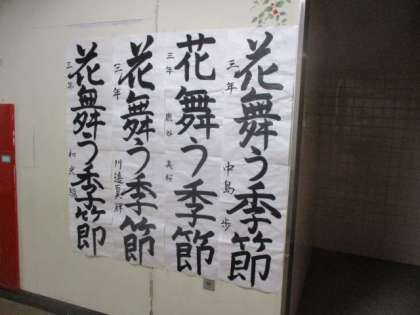 花舞う季節
三年 中島 歩
花舞う季節
三年
花舞う季節
三年 川邉真鮮
花舞う季節
三年